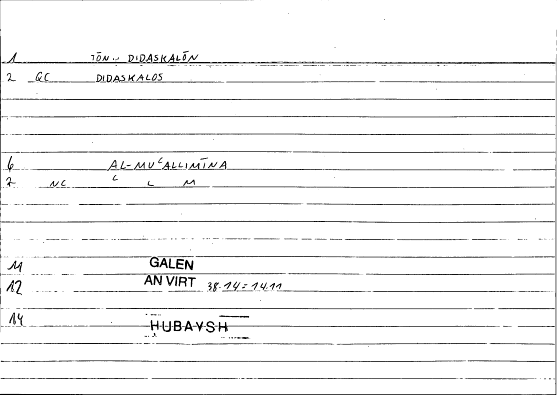 1 TŌN.. DIDASKALŌN
2 QC DIDASKALOS
6 AL-MUʿALLIMĪNA
7 NC ʿ L M
11 GALEN
12 AN VIRT 38.14 = 14.11
14 HUBAYSH